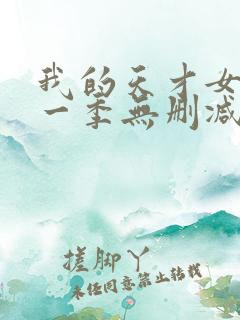 我的天才女
一季無删减
搓脚丫
未经同意禁止转载